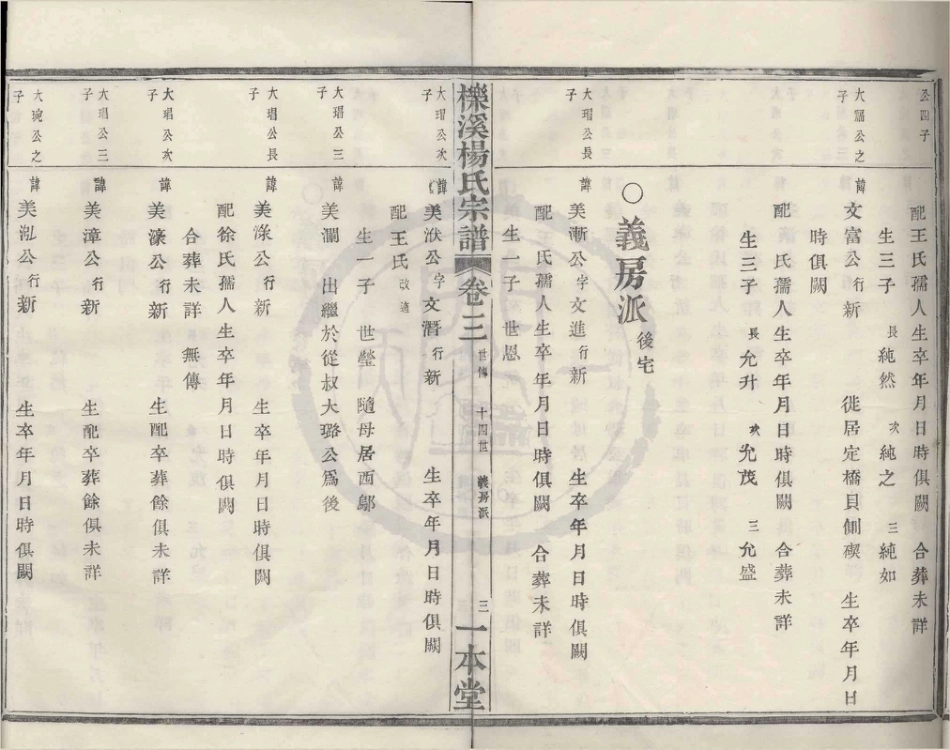 公四子
配王氏孺人生卒年月日時俱闕 合葬未詳
生三子 長純然 次純之 三純如
大㵢公之子
諱文富公行新 徙居定橋貝側礎 生卒年月日
時俱闕
配 氏孺人生卒年月日時俱闕 合葬未詳
生三子 長允升 次允茂 三允盛
○義房派後宅
大瑁公長子
諱美漸公字文進行新 生卒年月日時俱闕
配 氏孺人生卒年月日時俱闕 合葬未詳
生一子 世恩
櫟溪楊氏宗譜 卷三 世傳 十四世 義房派 三 一本堂
大瑁公次子
諱美洑公字文潛行新 生卒年月日時俱闕
配王氏改適
生一子 世瑩 隨母居西鄔
大瑁公三子
諱美瀾 出繼於從叔大璐公爲後
大琩公長子
諱美淥公行新 生卒年月日時俱闕
配徐氏孺人生卒年月日時俱闕
合葬未詳 無傳
大琩公次子
諱美濠公行新 生配卒葬餘俱未詳
大琩公三子
諱美漳公行新 生配卒葬餘俱未詳
大琬公之子
諱美泓公行新 生卒年月日時俱闕